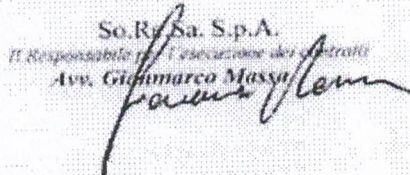 So.Re.Sa. S.p.A.
Il Responsabile per l'esecuzione dei contratti
Avv. Gianmarco Massa